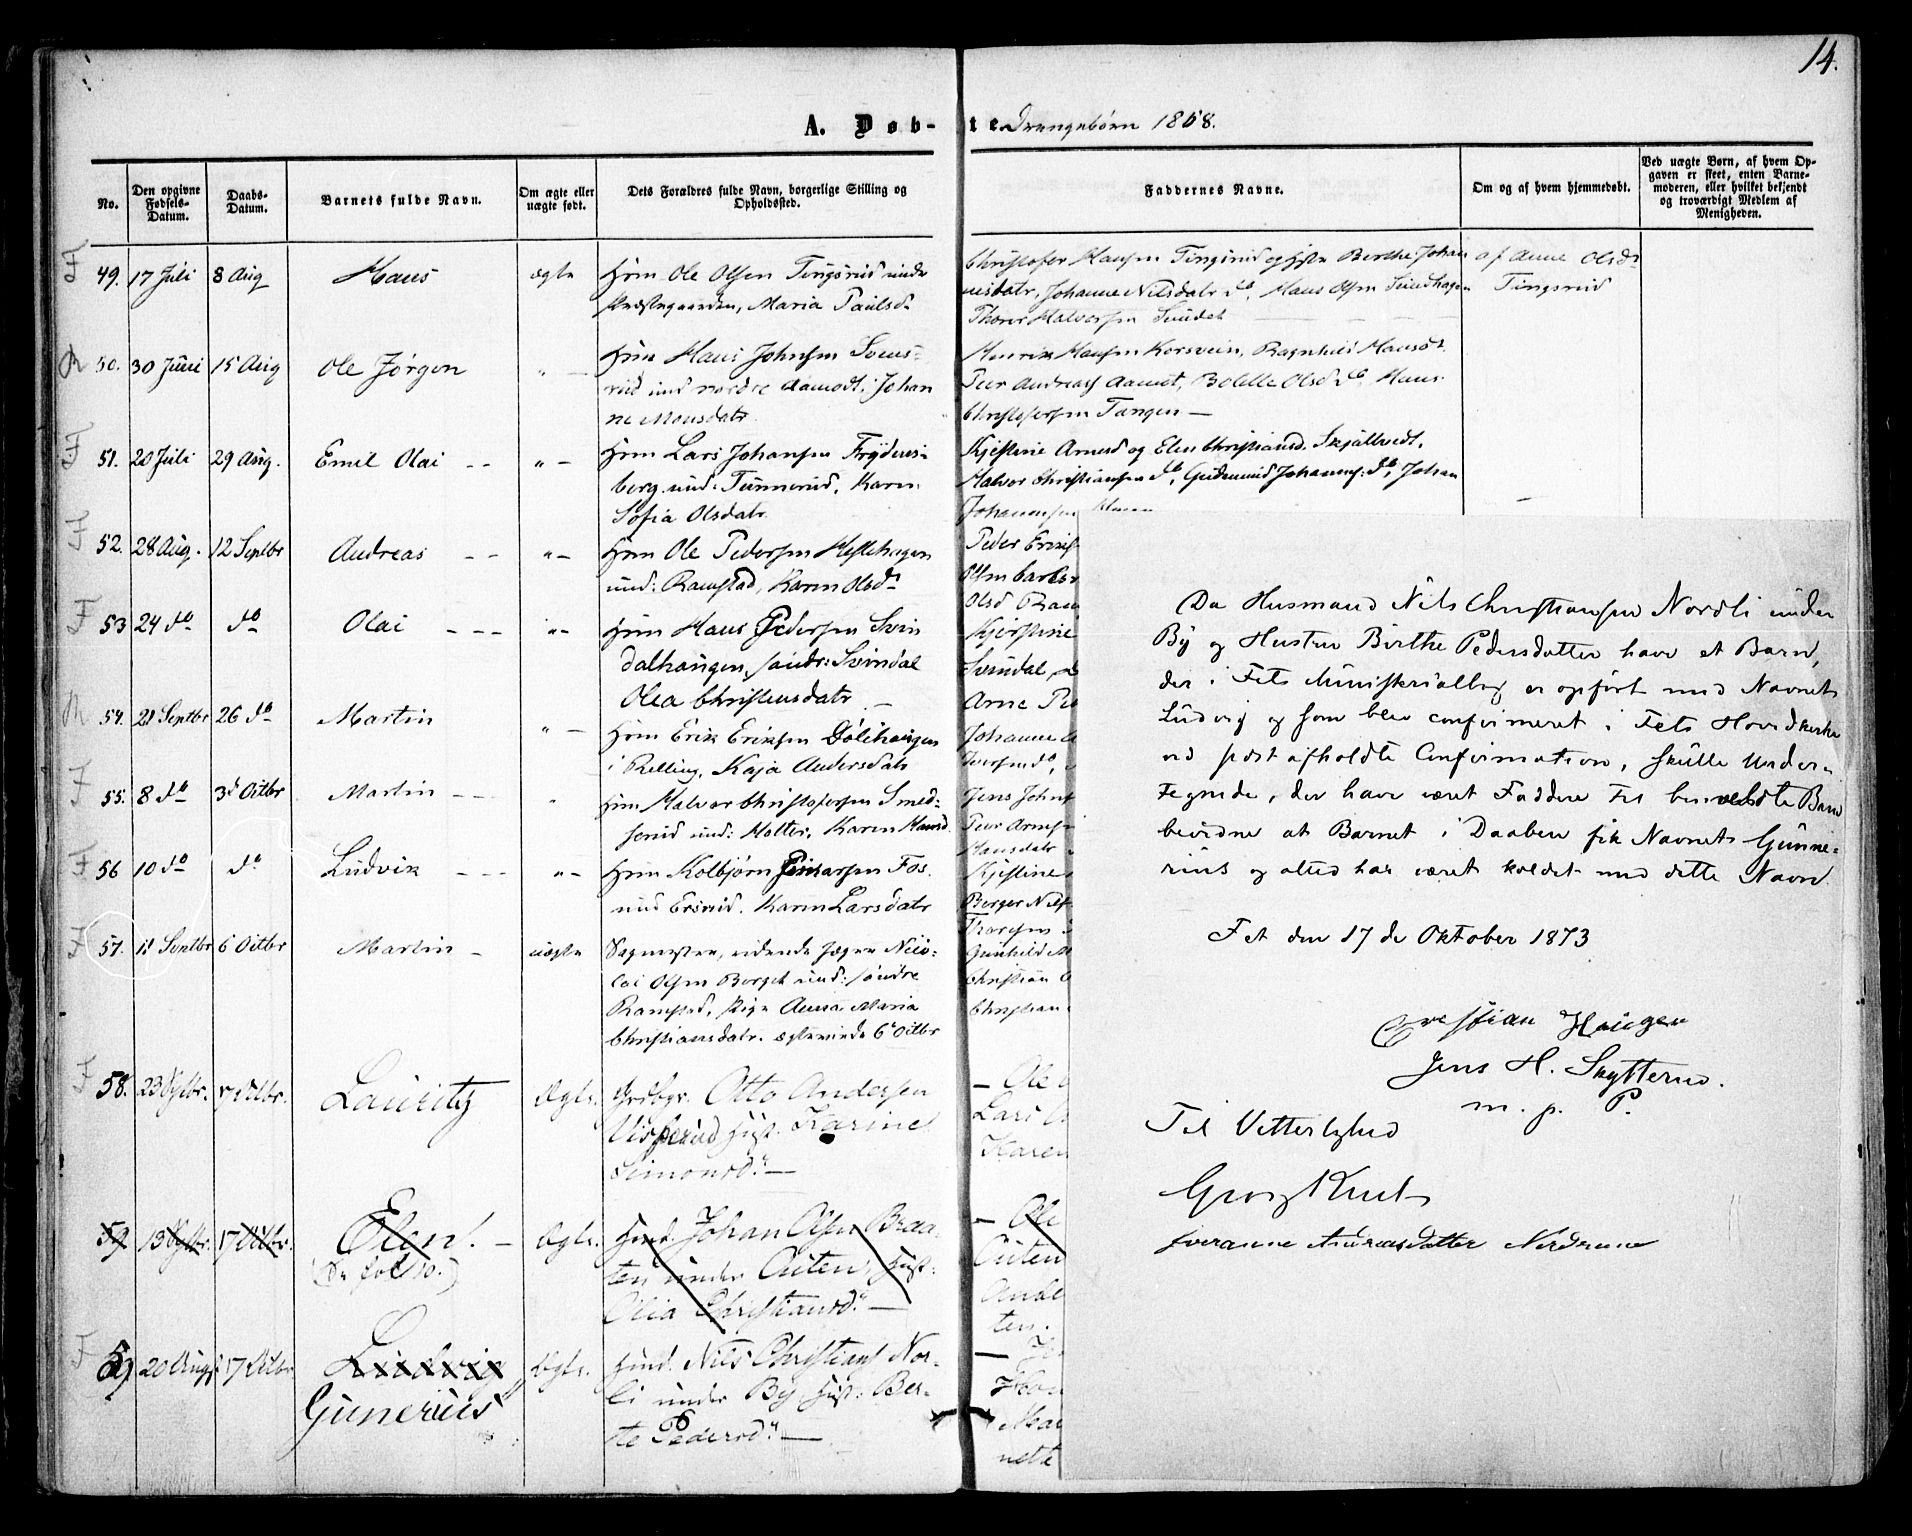 14.
A. Døb-te Drengebørn 1868.
No.
Den opgivne Fødsels-Datum.
Daabs-Datum.
Barnets fulde Navn.
Om ægte eller uægte født.
Dets Forældres fulde Navn, borgerlige Stilling og Opholdssted.
Faddernes Navne.
Om og af hvem hjemmedøbt.
Ved uægte Børn, af hvem Opgaven er skeet, enten Barnemoderen, eller hvilket bekjendt og troværdigt Medlem af Menigheden.
F 49. 17 Juli 8 Aug Hans ægte Hsm Ole Olsen Tingsrud under
Præstegaarden, Maria Paulsd.
Christofer Hansen Tingsrud og Berthe Johan
nesdatr, Johanne Nilsdatr do, Hans Olsen Sundhagen
Thorer Halvorsen Sundet
af Anne Olsd.
Tingsrud
50. 30 Juni 15 Aug Ole Jørgen " — Hsm Hans Johnsen
rud und nordre Aamodt, Johan
ne Monsdatr.
Henrik Hansen Korsvein, Ragnhild Hansd.
Peer Andreas Aamot, Bolette Olsd do, Hans
Christofersen Tangen —
F 51. 20 Juli 29 Aug. Emil Olai - - " — Hsm Lars Johansen
berg und: Tunnerud, Karen
Sofia Olsdatr.
Kjestine Arnesd og Elen Christiansd. Skjatvedt,
Halvor Christiansen do, Gudmund Johannes: do, Johan
Johannesen
F 52. 28 Aug. 12 Septbr Andreas - - " — Hsm Ole Pedersen Heslehagen
und: Ramstad, Karen Olsd.
Peder Erik
Olsd Ram
F 53 24 do do Olai - - - " - Hsm Hans Pedersen Svin
dalhaugen, søndr: Svindal
Olea Christensdatr —
Kjerstine
Svindal
Arne
54. 21 Septbr 26 do Martin " — Hsm Erik Eriksen Dølihaugen
i Relling, Kaja Andersdatr
Johanne
F 55. 8 do 3d Octbr Martin - - - " Hsm Halvor Christofersen Smed-
serud und: Holter, Karen Hansd
Jens Johns
Peer Arnes
Hansdatr
F 56 10 do do Ludvik - - - " - Hsm Kolbjørn Einarsen Fos.
und Ersrud. Karen Larsdatr
Kjestine
Berger Nils
F 57. 11 Septbr 6 Octbr Martin - uægte ridende Jæger Nico-
lai Olsen Berget und: søndre
Ramstad, Pige Anna Maria
Christiansdatr. ægteviede 6 Octbr
Gunhild
Christian
Christian
F 58. 17 Octbr. Lauritz Ægte. Grdbgr. Otto Andersen
Visperud Hust. Karine
Simonsd. —
— Ole
Lars
Karen
59 13 17 Octbr. Elen. — Ægte. Husd. Johan Olsen Braa-
(Se fol 10.)
ten under Outen, Hust:
Olia Christiansd. —
— Ole
Outen
Ande
ten.
F 59 20 August 17 Octbr. Ludvig Ægte. Husd. Nils Christians Nor-
Gunerius
li under By, Hust: Ber-
te Pedersd. —
Mar
nette
Da Husmand Nils Christiansen Nordli under
By og Hustru Birthe Pedersdatter have et Barn,
der i Fets Ministerialbog er opført med Navnet
Ludvig og som blev confirmeret i Fets Hovedkirke
ved sidst afholdte Confirmation, skulle Under-
tegnede, der have været Faddere til bemeldte Barn
bevidne at Barnet i Daaben fik Navnet Gunne-
rius og altid har været kaldet med dette Navn.
Fet den 17 de Oktober 1873
Christian Hauger
Jens H. Skytterud.
m. p. P.
Til Vitterlighed
Iveranne Andreasdatter Nordrum